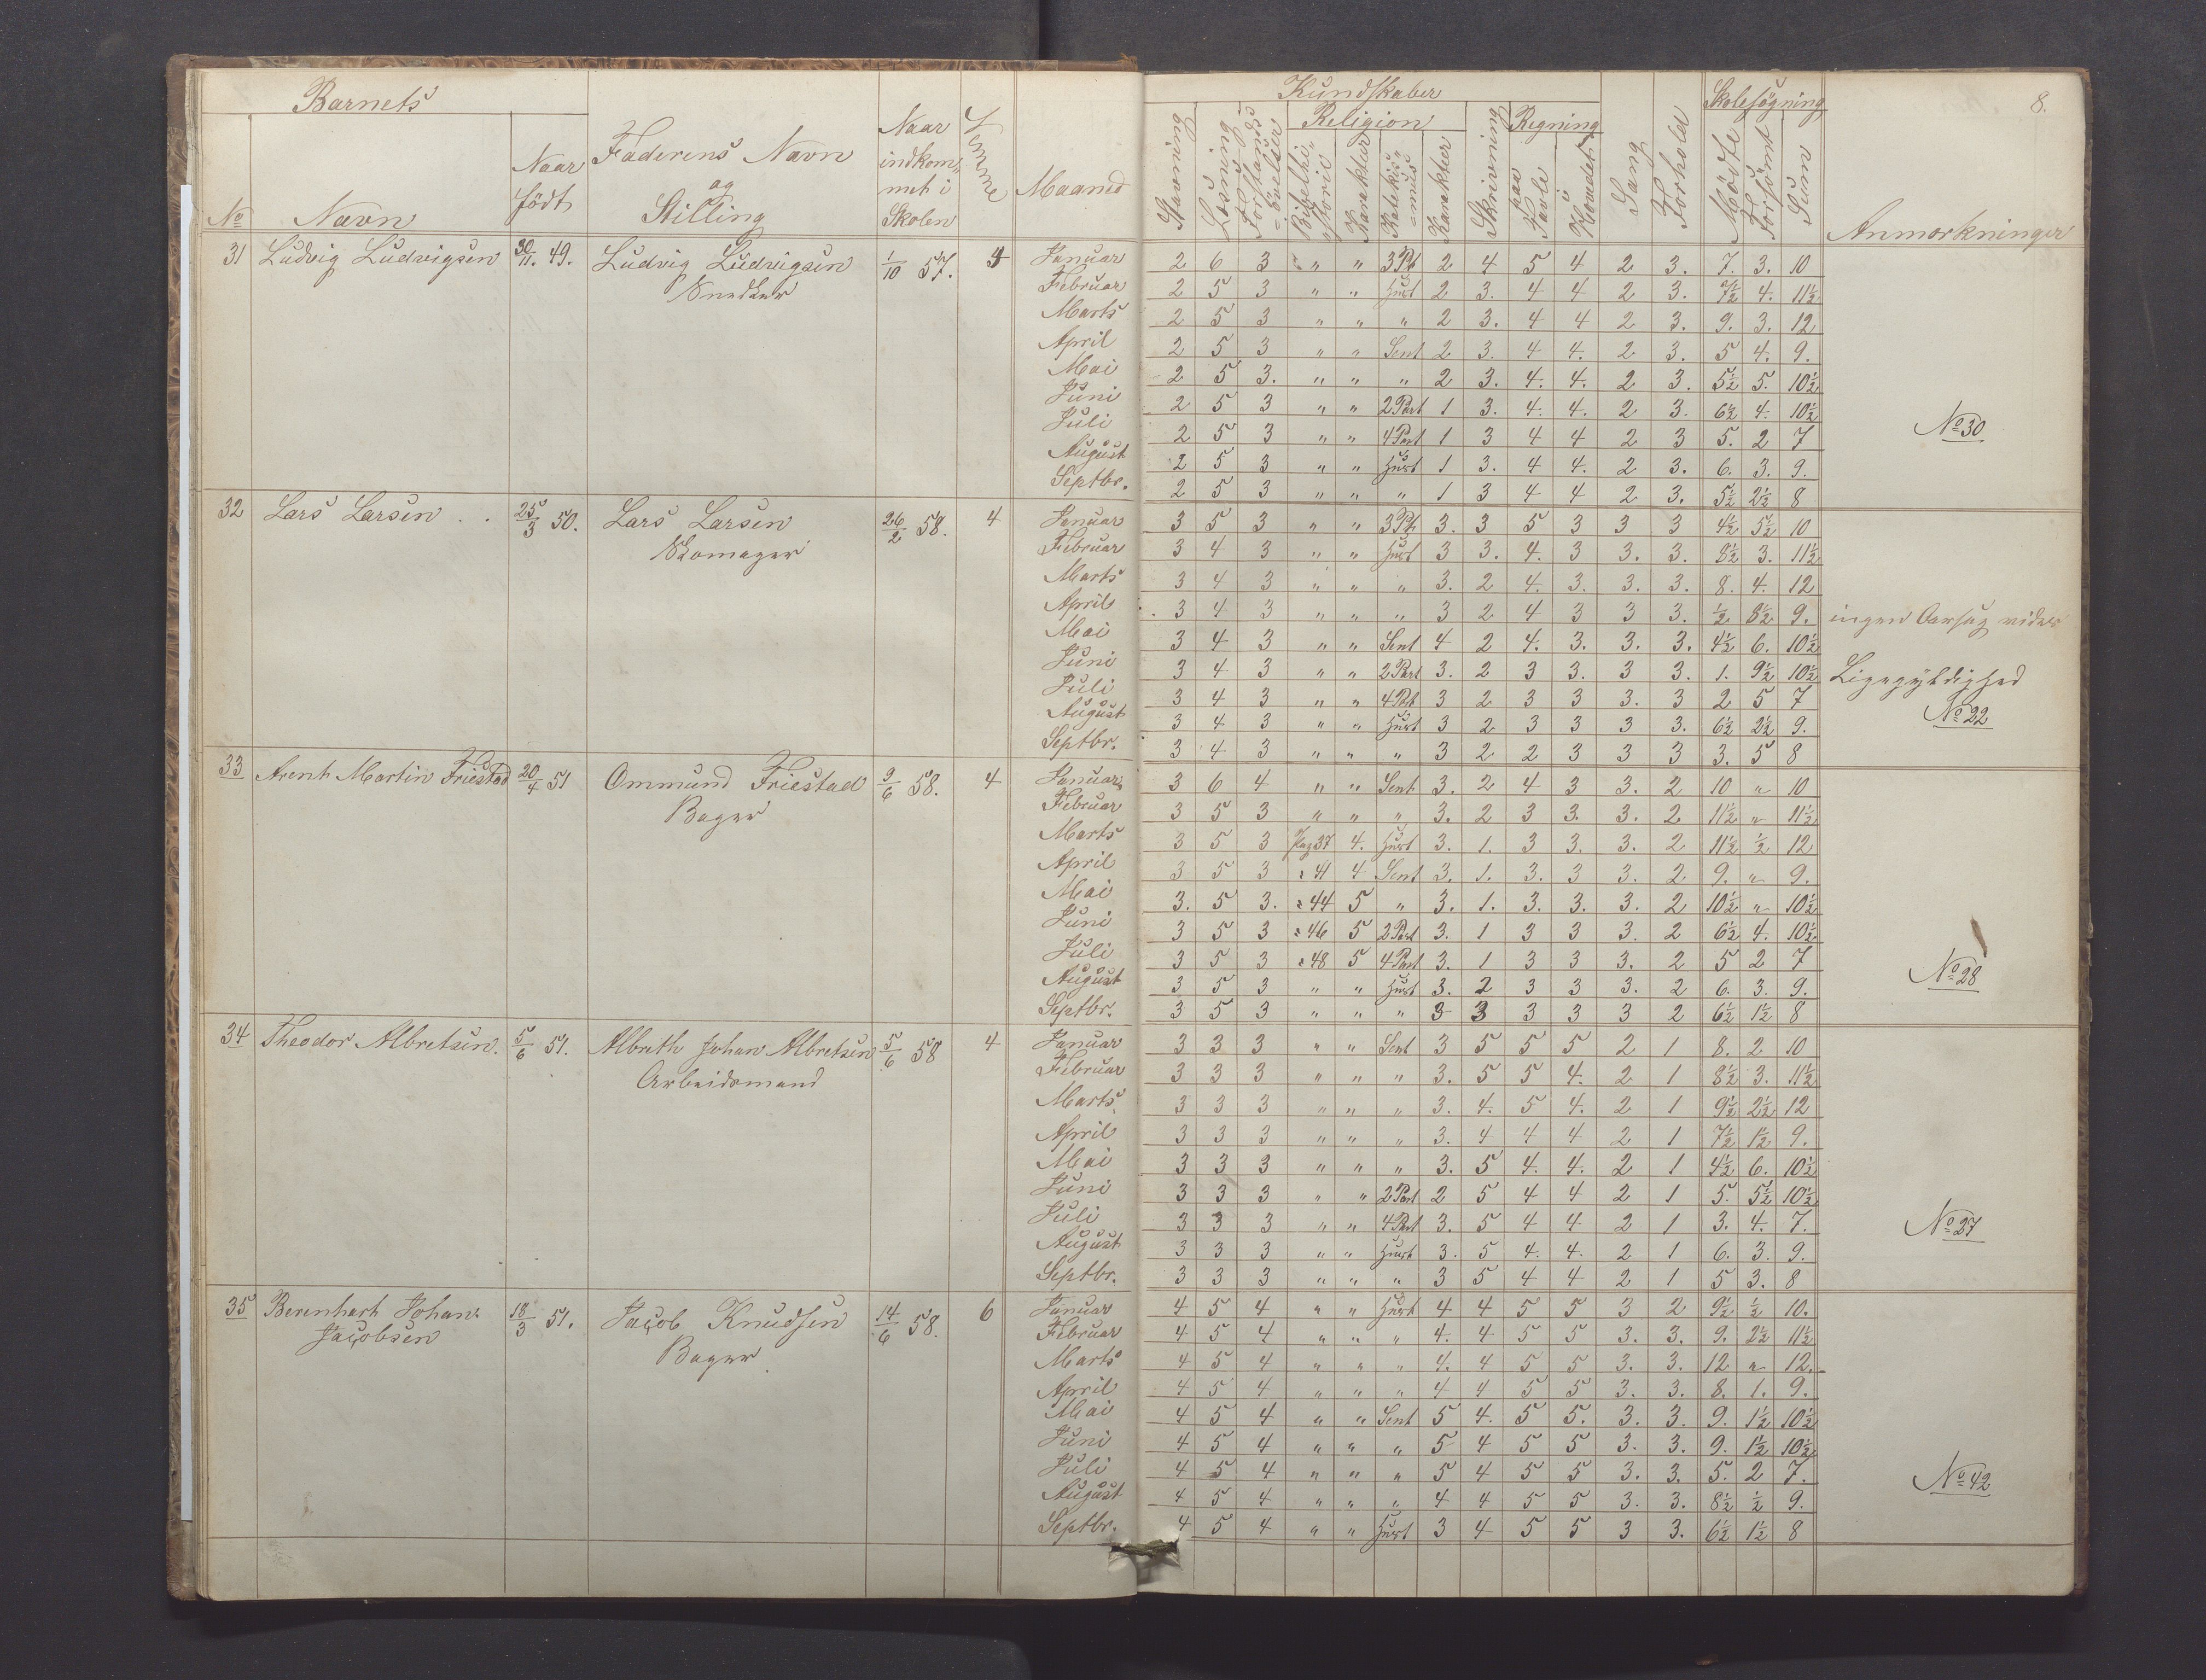 Barnets
Kundskaber
8.
Religion
Regning
Skolesøgning
No
Navn
Naar født
Faderens Navn og Stilling
Naar indkommet i Skolen
Maaned
Stavning
Læsning
Forstandsøvelser
Karakter
Karakter
Skrivning
paa Tavle
i Hovedet
Sang
Forhold
Mødte
Forsømt
Sum
Anmærkninger
31 Ludvig Ludvigsen 30/11. 49. Ludvig Ludvigsen 1/10 57. Januar 2 6 3 " " 3 Pt 2 4 5 4 2 3. 7. 3. 10
Snedker Februar 2 5 3 " " 2 3. 4 4 2 3. 7½ 4. 11½
Marts 2 5 3 " " " 2 3. 4 4 2 3. 9. 3. 12
April 2 5 3 " " Sent 2 3. 4 4. 2 3. 5 4. 9.
Mai 2 5 3. " " " 2 3. 4. 4. 2 3. 5½ 5. 10½
Juni 2 5 3 " " 2 Part 1 3. 4. 4. 2 3. 6½ 4. 10½
Juli 2 5 3 " " 4 Part 1 3 4 4 2 3 5. 2 7 No 30
August 2 5 3 " " 1 3. 4 4. 2 3. 6. 3. 9.
Septbr. 2 5 3 " " " 1 3 4 4 2 3. 5½ 2½ 8
32 Lars Larsen 25/3 50. Lars Larsen 26/2 58. 4 Januar 3 5 3 " " 3 Pt 3. 3 5 3 3 3 4½ 5½ 10
Skomager Februar 3 4 3 " " 3 3. 4. 3 3. 3. 8½ 3. 11½
Marts 3 4 3 " " " 3. 2 4. 3. 3. 3. 8. 4. 12
April 3 4 3 " " " 3 2 4 3 3 3. ½ 8½ 9. ingen
Mai 3 4 3 " " Sent 4 2 4. 3. 3. 3. 4½ 6. 10½
Juni 3 4 3 " " 2 Part 3. 2 3 3. 3 3. 1. 9½ 10½ Ligegyldighed
Juli 3 4 3 " " 4 Part 3 2 3 3 3. 3 2 5 7
August 3 4 3 " " 3 2 3 3 3 3. 6½ 2½ 9. No 22
Septbr. 3 4 3 " " " 3 2 2 3 3 3 3. 5 8
33 Arent Martin Friestad 20/4 51 Ommund Friestad 9/6 58. 4 Januar 3 6 4 " " Sent 3. 2 4 3 3. 2 10 " 10
Bager Februar 3 5 3 " " " 3. 2 3 3. 3. 2 11½ " 11½
Marts 3 5 3 Pag 37 4. 3. 1. 3 3. 3. 2 11½ ½ 12
April 3 5 3 " 41 4 Sent 3. 1. 3. 3 3. 2 9. " 9.
Mai 3. 5 3. " 44 5 " 3. 1. 3. 3. 3. 2 10½ " 10½
Juni 3 5 3 " 46 5 2 Part 3. 1 3 3 3. 2 6½ 4. 10½
Juli 3 5 3 " 48 5 4 Part 3. 1 3 3 3. 2 5 2 7 No 28
August 3 5 3 " " 3. 2 3 3 3. 2 6. 3. 9.
Septbr. 3 5 3 " " " 3 3 3 3 3 2 6½ 1½ 8
34 Theodor Albretsen. 5/6 51. Albrith Johan Albretsen 5/6 58 4 Januar 3 3 3 " " Sent 3 5 5 5 2 1 8. 2 10
Arbeidsmand Februar 3 3 3 " " " 3. 5 5 4. 2 1 8½ 3. 11½
Marts 3 3 3 " " " 3. 4. 5 4. 2 1 9½ 2½ 12
April 3 3 3 " " " 3. 4 4 4 2 1 7½ 1½ 9.
Mai 3 3 3 " " " 3. 5 4. 4. 2 1 4½ 6. 10½
Juni 3 3 3 " " 2 Part 2 5 4 4 2 1 5. 5½ 10½
Juli 3 3 3 " " 4 Part 3. 5 4 4 2 1 3. 4. 7. No 27
August 3 3 3 " " 3. 5 4. 4. 2 1 6. 3. 9.
Septbr. 3 3 3 " " " 3 5 4 4 2 1 5 3. 8
35 Berenhart Johan 18/3 51. Jacob Knudsen 14/6 58. 6 Januar 4 5 4 " " 4 4 5 5 3 2 9½ ½ 10.
Jacobsen Bager Februar 4 5 4 " " " 4. 4 5 5 3. 3. 9. 2½ 11½
Marts 4 5 4 " " " 4. 4 5 5 3. 3. 12 " 12.
April 4 5 4 " " " 4 4 5 5 3. 3. 8. 1. 9.
Mai 4 5 4 " " Sent 5 4. 5 5. 3. 3. 9. 1½ 10½
Juni 4 5 4 " " " 5 4 5 5 3. 3. 9. 1½ 10½
Juli 4 5 4 " " " 5 4 5 5 3. 3. 5. 2 7. No 42
August 4 5 4 " " " 4 4 5 5 3. 3. 8½ ½ 9.
Septbr. 4 5 4 " " 3 4 5 5 3 3. 6½ 1½ 8